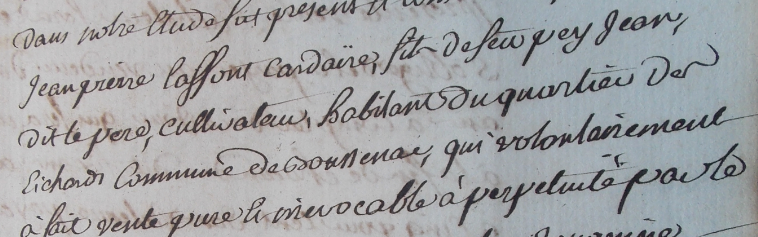 dans notre Etude fut présent et
Jeanpierre laffont Cardaïre, fils de feu pey Jean,
dit le pere, cultivateur, habitant du quartier des
Richards Commune de Boussenac, qui volontairement
à fait vente pure & irrevocable à perpetuité par le